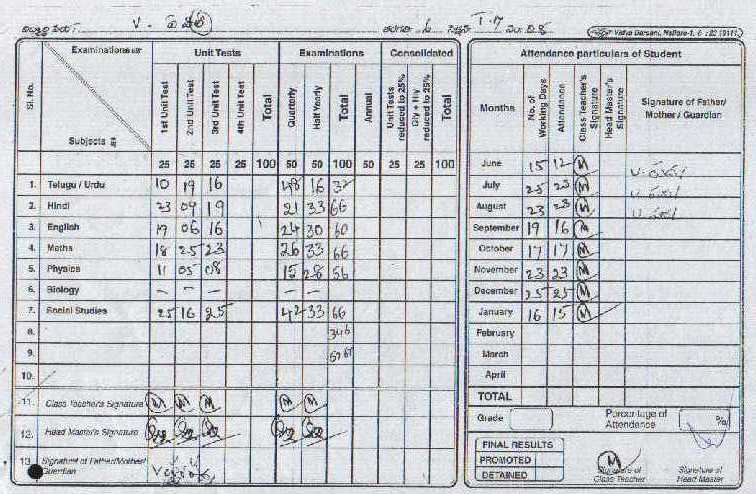 V.
Examinations
Unit Tests
Examinations
Consolidated
Attendance particulars of Student
Sl. No.
Subjects
1st Unit Test
2nd Unit Test
3rd Unit Test
4th Unit Test
Total
Quarterly
Half Yearly
Total
Annual
Unit Tests reduced to 25%
Qly + Hly reduced to 25%
Total
Months
No. of Working Days
Attendance
Class Teacher's Signature
Head Master's Signature
Signature of Father/ Mother / Guardian
25 25 25 25 100 50 50 100 50 25 25 100
1. Telugu / Urdu 10 19 16 48 16 32
2. Hindi 23 09 19 21 33 66
3. English 19 06 16 24 30 60
4. Maths 18 25 23 26 33 66
5. Physics 11 05 08 15 28 56
6. Biology – – –
7. Social Studies 25 16 25 42 33 66
8. 346
9.
10.
11. Class Teacher's Signature M M M M M
12. Head Master's Signature
13. Signature of Father/Mother/ Guardian
June 15 12 M
July 25 23 M
August 23 23 M
September 19 16 M
October 17 17 M
November 23 23 M
December 25 25 M
January 16 15 M
February
March
April
TOTAL
Grade
Percentage of Attendance
FINAL RESULTS
PROMOTED
DETAINED
Signature of Class Teacher
Signature of Head Master